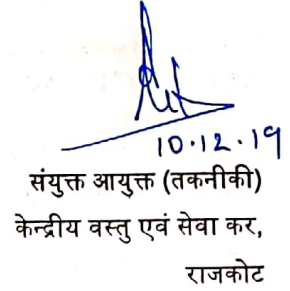 10.12.19
संयुक्त आयुक्त (तकनीकी)
केन्द्रीय वस्तु एवं सेवा कर,
राजकोट